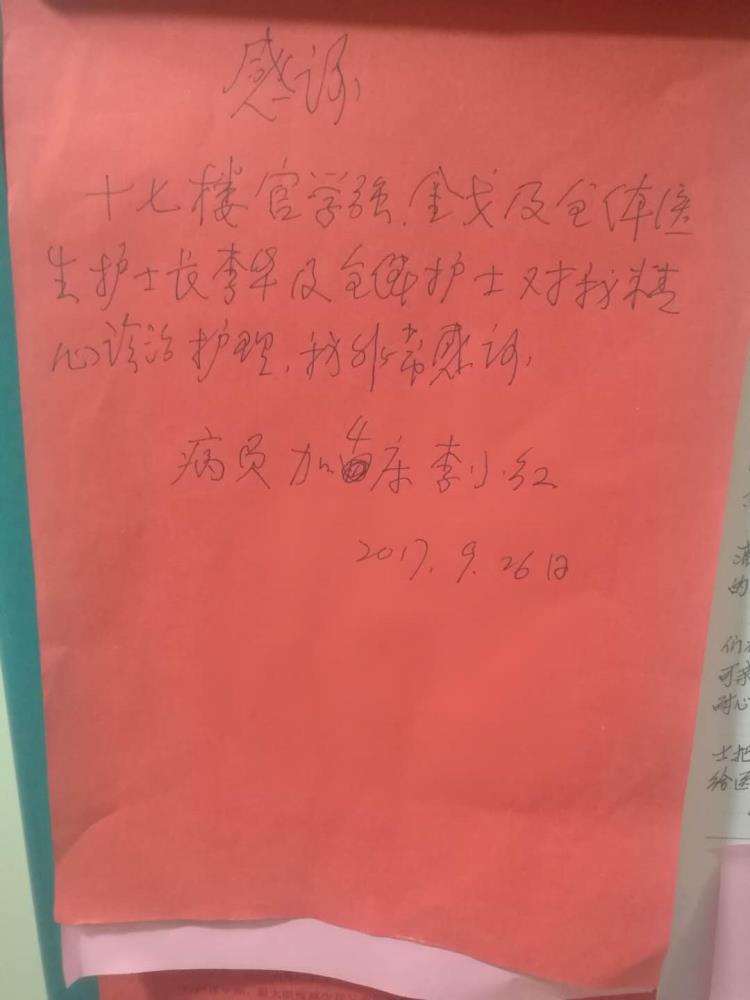 感谢
十七楼官学强、金戈及全体医
生护士长李华及全体护士对我精
心诊治护理,我非常感谢,
病员加4床李小红
2017.9.26日
们
可亲
耐心
士把
给医